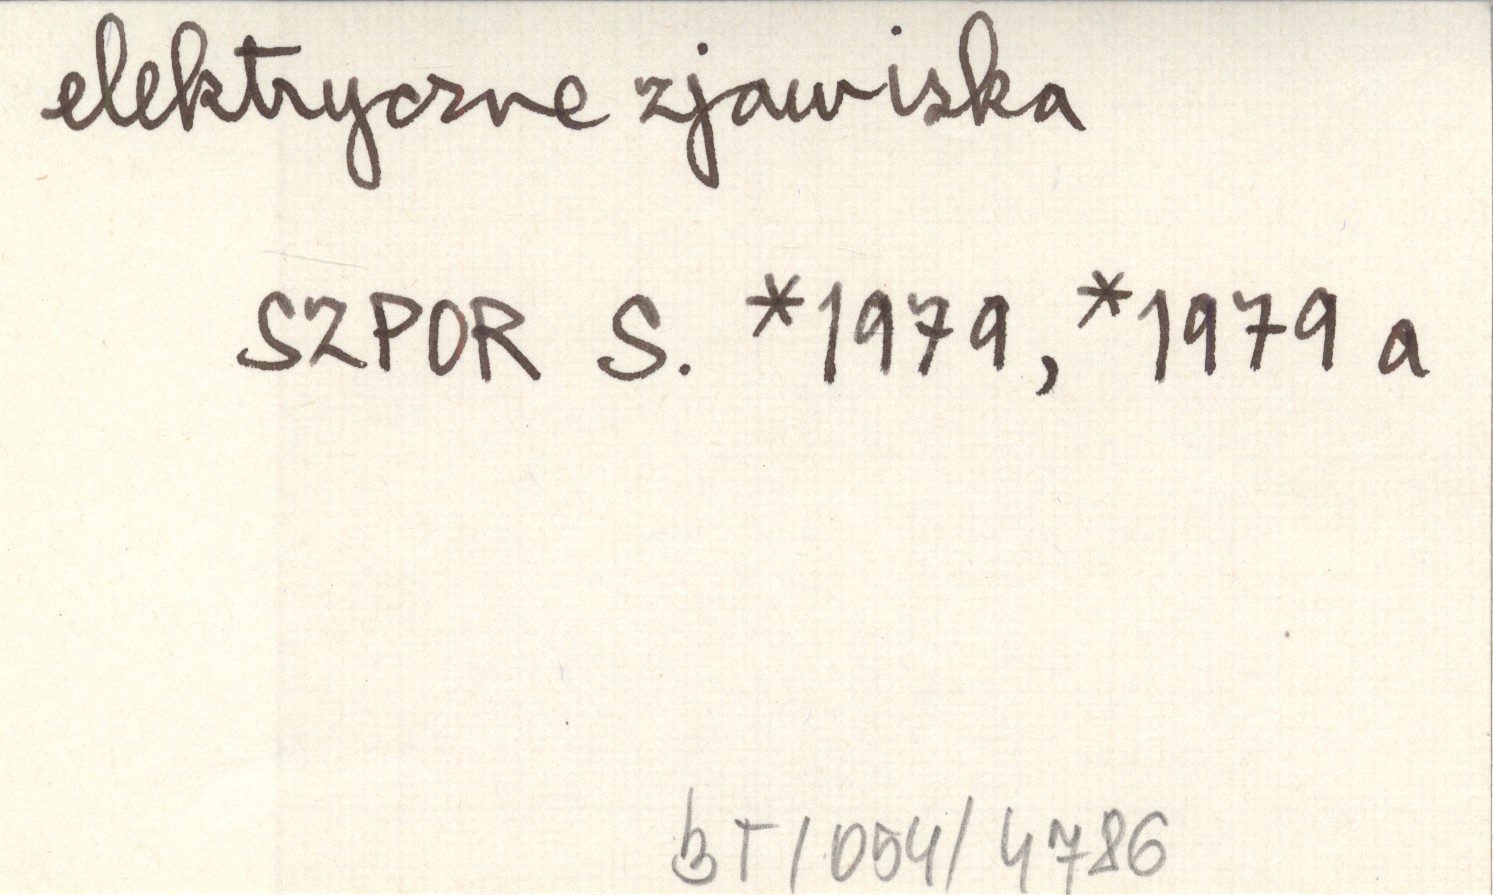 elektryczne zjawiska
SZPOR S. *1979, *1979 a
bT/054/4786